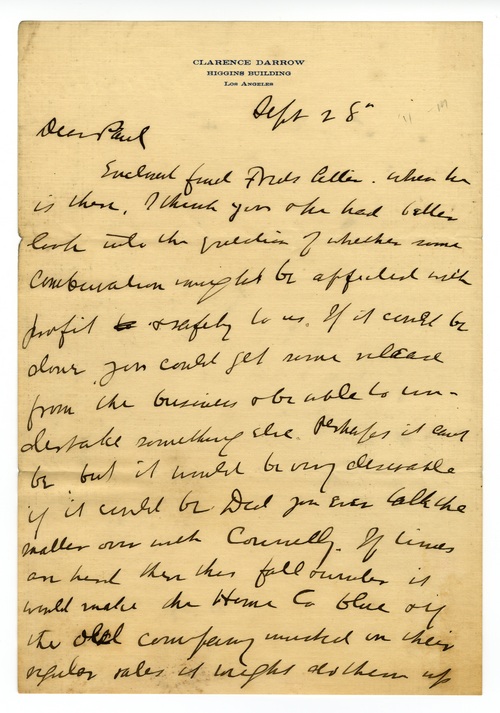 CLARENCE DARROW
HIGGINS BUILDING
LOS ANGELES
Sept 28"
Dear Paul
Enclosed find Freds letter. When he
is there, I think you & he had better
look into the question of whether some
combination might be affected with
profit & safety to us. If it could be
done, you could get some release
from the business & be able to un-
dertake something else. Perhaps it cant
be but it would be very desirable
if it could be Did you ever talk the
matter over with Connelly. If times
are hard then this fall & winter it
would make the Home Co blue & if
the old company insisted on their
regular rates it might do them up